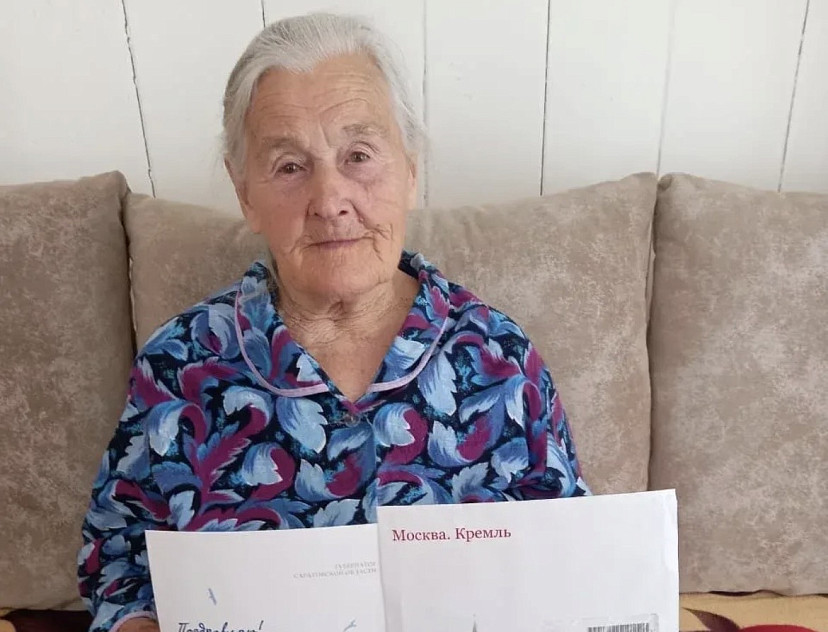 ГУБЕРНАТОР
САРАТОВСКОЙ ОБЛАСТИ
Поздравляю!
Москва. Кремль